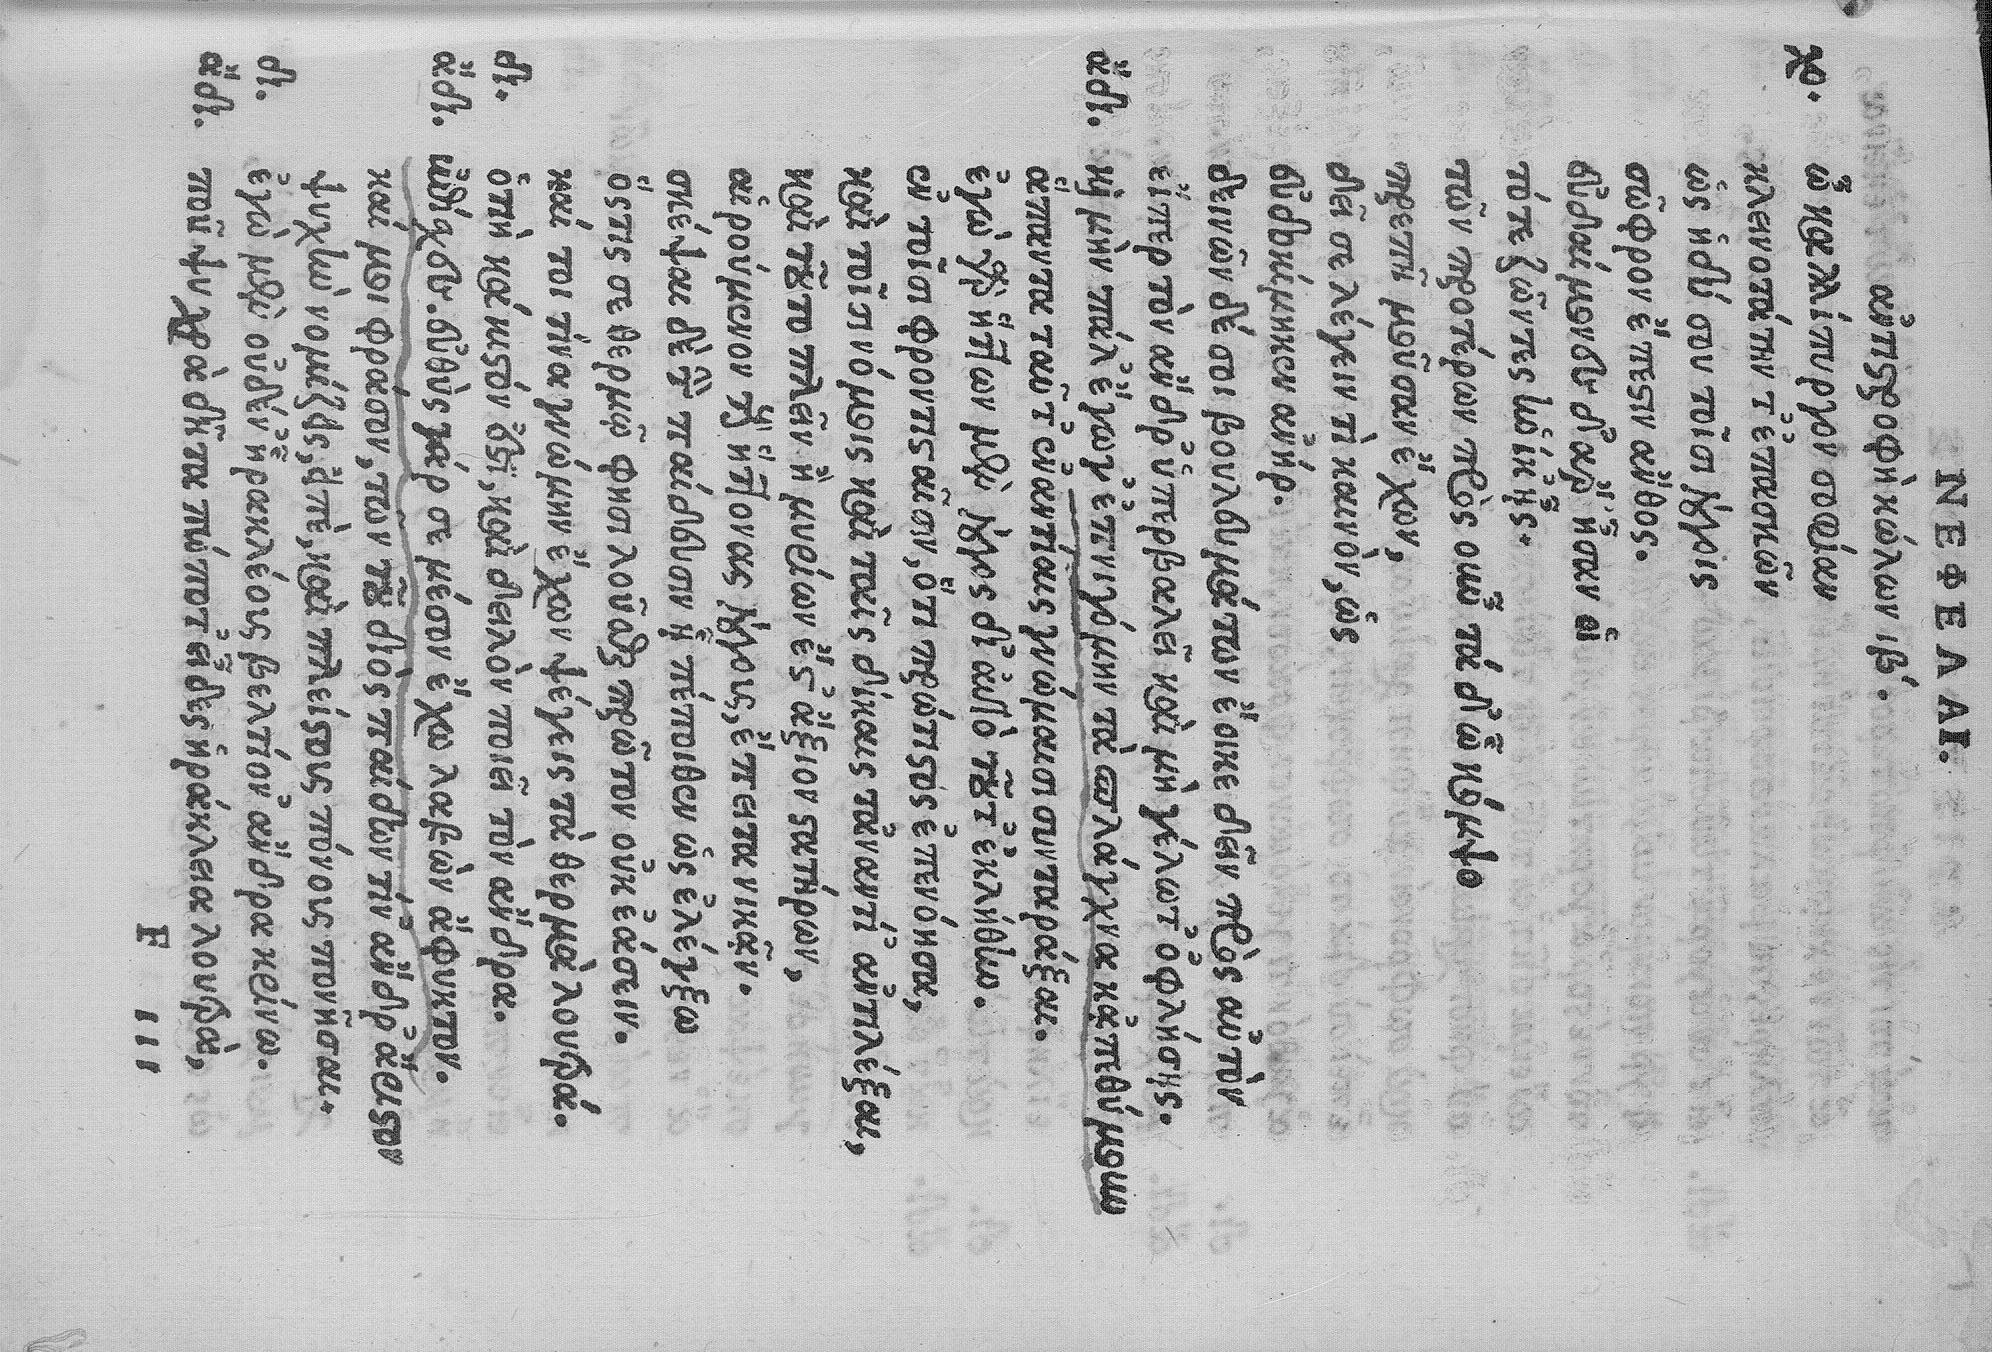 ΝΕΦΕΛΑΙ.
ἀντιστροφὴ κώλων ιβ.
χο. ὦ καλλίπυργον σοφίαν
κλεινοτάτην τ' ἐπασκῶν
ὡς ἡδύ σου τοῖσι λόγοις
σῶφρον ἔπεστιν ἄνθος.
εὐδαίμονες δ' ἄρ' ἦσαν οἱ
τότε ζῶντες ἡνίκ' ἦς.
τῶν προτέρων πρὸς οὖν τάδ' ὦ κομψο
πρεπῆ μοῦσαν ἔχων,
δεῖ σε λέγειν τὶ καινὸν, ὡς
εὐδοκίμηκεν ἀνήρ.
δεινῶν δέ σοι βουλευμάτων ἔοικε δεῖν πρὸς αὐτὸν
εἴπερ τὸν ἄνδρ' ὑπερβαλεῖ καὶ μὴ γέλωτ' ὀφλήσης.
ἄδι. κὴ μὴν πάλ' ἔγωγ' ἐπνιγόμην τὰ σπλάγχνα κἀπεθύμουν
ἅπαντα ταῦτ' ἐναντίαις γνώμαισι συνταράξαι.
ἐγὼ γὰρ ἥττων μὲν λόγος δι' αὐτὸ τοῦτ' ἐκλήθην.
ἐν τοῖσι φροντισταῖσιν, ὅτι πρώτιστος ἐπενόησα,
καὶ τοῖσι νόμοις καὶ ταῖς δίκαις τἀναντί' ἀντιλέξαι,
καὶ τοῦτο πλεῖν ἢ μυρίων ἔστ' ἄξιον στατήρων,
αἱρούμενον τοὺς ἥττονας λόγους, ἔπειτα νικᾶν.
σκέψαι δὲ τὴν παίδευσιν ᾗ πέποιθεν ὡς ἐλέγξω
ὅστις σε θερμῷ φησι λοῦσθαι πρῶτον οὐκ ἐάσειν.
καί τοι τίνα γνώμην ἔχων ψέγεις τὰ θερμὰ λουτρά.
δι. ὁτιὴ κάκιστόν ἐστι, καὶ δειλὸν ποιεῖ τὸν ἄνδρα.
ἄδι. ἐπίσχες. εὐθὺς γάρ σε μέσον ἔχω λαβὼν ἄφυκτον.
καί μοι φράσον, τῶν τοῦ διὸς παίδων τίν' ἄνδρ' ἄριστον
ψυχὴν νομίζεις, εἰπὲ, καὶ πλείστους πόνους πονῆσαι.
δι. ἐγὼ μὲν οὐδέν' ἡρακλέους βελτίον' ἄνδρα κρίνω.
ἄδι. ποῦ ψυχρὰ δῆτα πώποτ' εἶδες ἡράκλεια λουτρὰ,
H iii